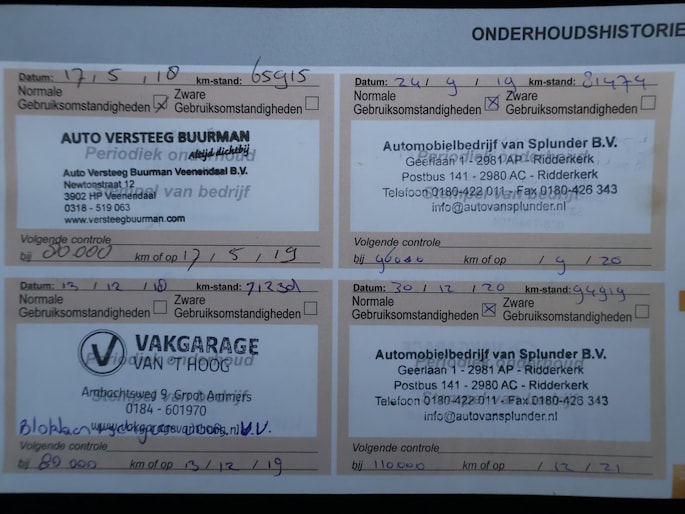 ONDERHOUDSHISTORIE
Datum: 17, 5, 18 km-stand: 65915
Normale Gebruiksomstandigheden Zware Gebruiksomstandigheden
AUTO VERSTEEG BUURMAN
altijd dichtbij
Periodiek onderhoud
Auto Versteeg Buurman Veenendaal B.V.
Newtonstraat 12
Stempel van bedrijf
3902 HP Veenendaal
0318 - 519 063
www.versteegbuurman.com
Volgende controle
bij 80.000 km of op 17, 5, 19
Datum: 24/ 9, 19 km-stand: 81479
Normale Gebruiksomstandigheden Zware Gebruiksomstandigheden
Automobielbedrijf van Splunder B.V.
Periodiek onderhoud
Geerlaan 1 - 2981 AP - Ridderkerk
Postbus 141 - 2980 AC - Ridderkerk
Stempel van bedrijf
Telefoon 0180-422 011 - Fax 0180-426 343
info@autovansplunder.nl
Volgende controle
bij 96000 km of op / 9 / 20
Datum: 13 / 12 / 18 km-stand:
Normale Gebruiksomstandigheden Zware Gebruiksomstandigheden
VAKGARAGE
VAN 'T HOOG
Periodiek onderhoud
Ambachtsweg 9, Groot Ammers
Stempel van bedrijf
0184 - 601970
www.vakgaragevanthoog.nl
V.V.
Volgende controle
bij 80 000 km of op 13 / 12 / 19
Datum: 30 / 12 / 20 km-stand: 94919
Normale Gebruiksomstandigheden Zware Gebruiksomstandigheden
Periodiek onderhoud
Automobielbedrijf van Splunder B.V.
Geerlaan 1 - 2981 AP - Ridderkerk
Postbus 141 - 2980 AC - Ridderkerk
Stempel van bedrijf
Telefoon 0180-422 011 - Fax 0180-426 343
info@autovansplunder.nl
Volgende controle
bij 110000 km of op / 12 / 21